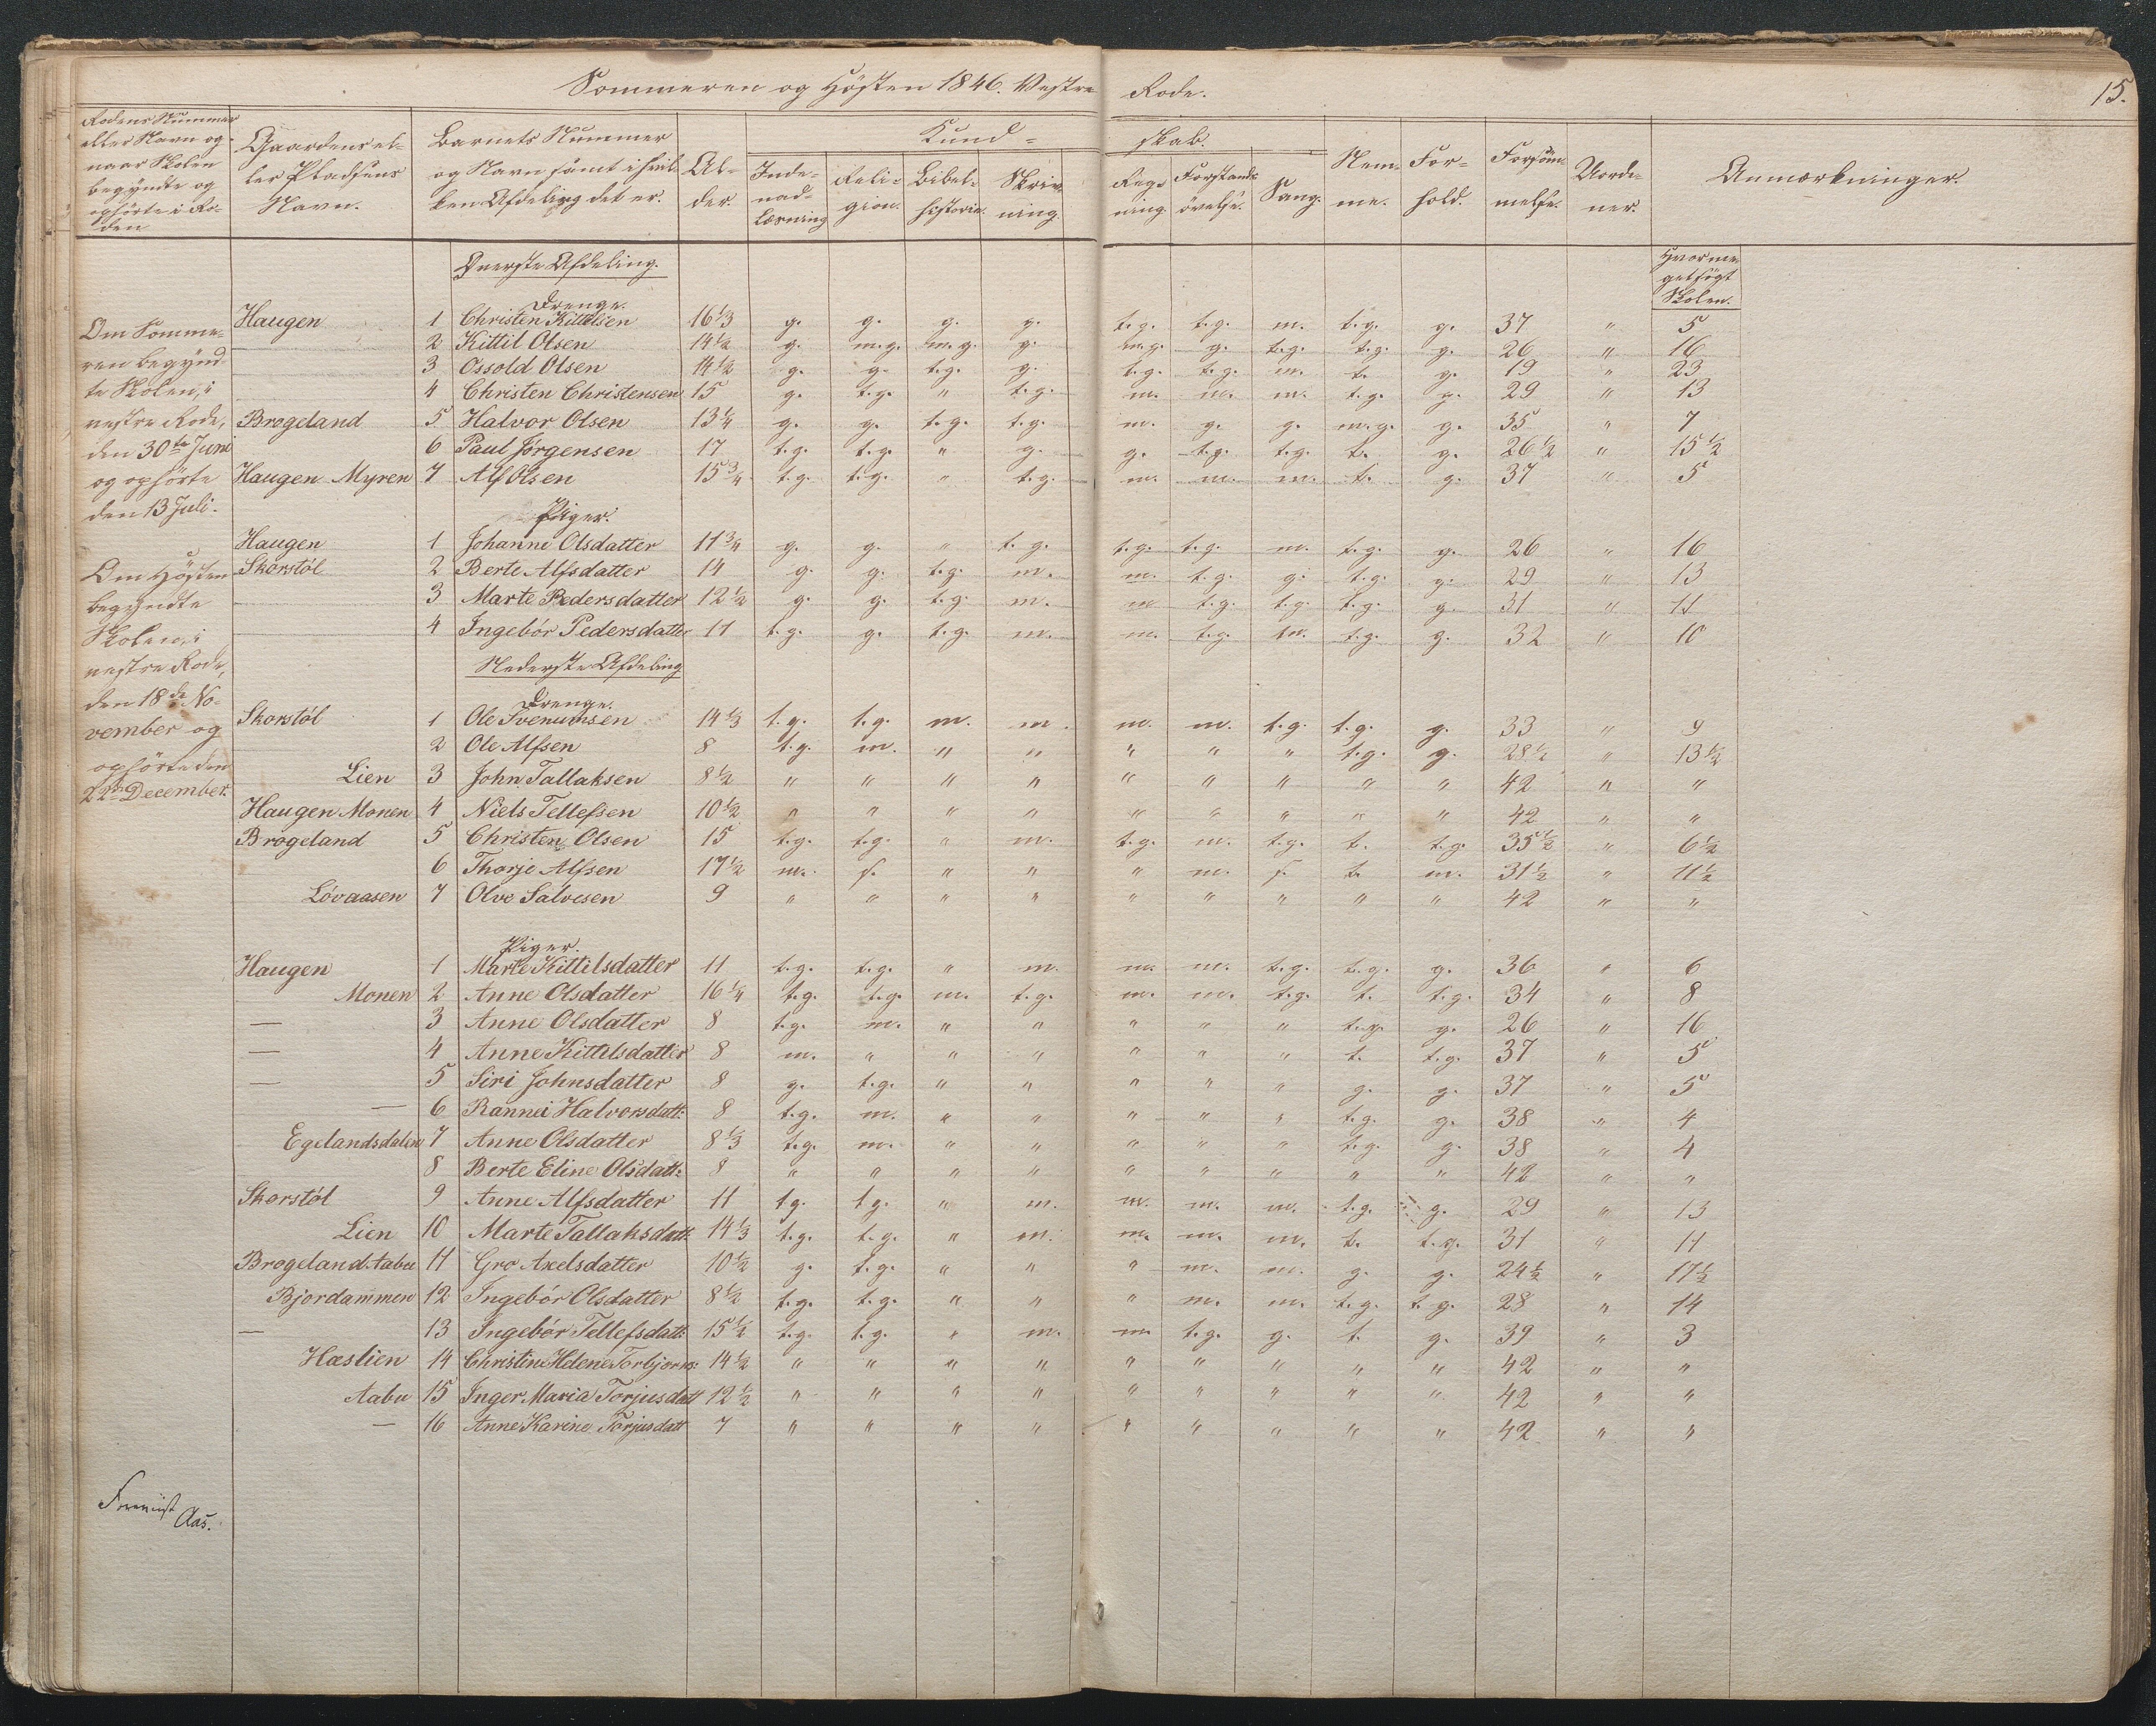 Sommeren og Høsten 1846. Vestre Rode. 15.
Rodens Nummer eller Navn og naar Skolen begyndte og ophørte i Roden | Gaardens eller Pladsens Navn. | Barnets Nummer og Navn samt i hvilken Afdeling det er. | Alder. | Kundskab. | Nemme. | Forhold. | Forsømmelse. | Uordener. | Anmærkninger.
Indenadlæsning | Religion. | Bibelhistorie. | Skrivning | Regning | Forstandsøvelse. | Sang.
Øverste Afdeling.
Hvormeget søgt Skolen.
Drenge.
Haugen 1 Christen Kittilsen 16 1/3 g. g. g. g. t.g. t.g. m. t.g. g. 37 " 5
2 Kittil Olsen 14 1/2 g. m.g. m.g. g. m.g. g. t.g. t.g. g. 26 " 16
3 Ossold Olsen 14 1/2 g. g. t.g. g. t.g. t.g. m. t. g. 19 " 23
4 Christen Christensen 15 g. t.g. " t.g. m. m. m. t.g. g. 29 " 13
Brogeland 5 Halvor Olsen 13 1/4 g. g. t.g. t.g. m. g. g. m.g. g. 35 " 7
6 Paul Jörgensen 17 t.g. t.g. " g. g. t.g. t.g. t. g. 26 1/2 " 15 1/2
Haugen Myren 7 Alf Olsen 15 3/4 t.g. t.g. " t.g. m. m. m. t. g. 37 " 5
Piger.
Haugen 1 Johanne Olsdatter 11 3/4 g. g. " t.g. t.g. t.g. m. t.g. g. 26 " 16
Skorstøl 2 Berte Alfsdatter 14 g. g. t.g. m. m. t.g. g. t.g. g. 29 " 13
3 Marte Pedersdatter 12 1/2 g. g. t.g. m. m t.g. t.g. t.g. g. 31 " 11
4 Ingebór Pedersdatter 11 t.g. g. t.g. m. m. t.g. m. t.g. g. 32 " 10
Nederste Afdeling
Drenge.
Skorstøl 1 Ole Svenumsen 14 1/3 t.g. t.g. m. m. m. m. t.g. t.g. g. 33 " 9
2 Ole Alfsen 8 t.g. m. " " " " " t.g. g. 28 1/2 " 13 1/2
Lien 3 John Tallaksen 8 1/2 " " " " " " " " " 42 " "
Haugen Monen 4 Niels Tellefsen 10 1/2 " " " " " " " " " 42 " "
Brogeland 5 Christen Olsen 15 t.g. t.g. " m. t.g. m. t.g. t. t.g. 35 1/2 " 6 1/2
6 Thorje Alfsen 17 1/2 m. s. " " " m. s. t. m. 31 1/2 " 11 1/2
Lóvaasen 7 Olve Salvesen 9 " " " " " " " " " 42 " "
Piger.
Haugen 1 Marte Kittilsdatter 11 t.g. t.g. " m. m. m. t.g. t.g. g. 36 " 6
Monen 2 Anne Olsdatter 16 1/4 t.g. t.g. m. t.g. m. m. t.g. t. t.g. 34 " 8
— 3 Anne Olsdatter 8 t.g. m. " " " " " t.g. g. 26 " 16
— 4 Anne Kittilsdatter 8 m. " " " " " " t. t.g. 37 " 5
— 5 Siri Johnsdatter 8 g. t.g. " " " " " g. g. 37 " 5
— 6 Rannei Halvorsdatt: 8 t.g. m. " " " " " t.g. g. 38 " 4
Egelandsdalen 7 Anne Olsdatter 8 1/3 t.g. m. " " " " " t.g. g. 38 " 4
8 Berte Eline Olsdatt: 8 " " " " " " " " " 42 " "
Skorstøl 9 Anne Alfsdatter 11 t.g. t.g. " m. m. m. m. t.g. g. 29 " 13
Lien 10 Marte Tallaksdatt: 14 1/3 t.g. t.g. " m. m. m. m. t. t.g. 31 " 11
Brogeland Aabu 11 Gro Axelsdatter 10 1/2 g. t.g. " " " m. m. g. g. 24 1/2 " 17 1/2
Bjordammen 12 Ingebór Olsdatter 8 1/2 t.g. t.g. " " " m. m. t.g. t.g. 28 " 14
— 13 Ingebór Tellefsdatt: 15 1/2 t.g. t.g. " m. m. t.g. g. t. g. 39 " 3
Hæslien 14 Christine Helene Torbjorns: 14 1/2 " " " " " " " " " 42 " "
Aabu 15 Inger Maria Torjusdatt 12 1/2 " " " " " " " " " 42 " "
— 16 Anne Karine Torjusdatt 7 " " " " " " " " " 42 " "
Om Somme-
ren begynd-
te Skolen, i
vestre Rode,
den 30te Juni
og ophörte
den 13 Juli.
Om Hösten
begyndte
Skolen, i
vestre Rode,
den 18de No-
vember og
ophörte den
22n December.
Aas.